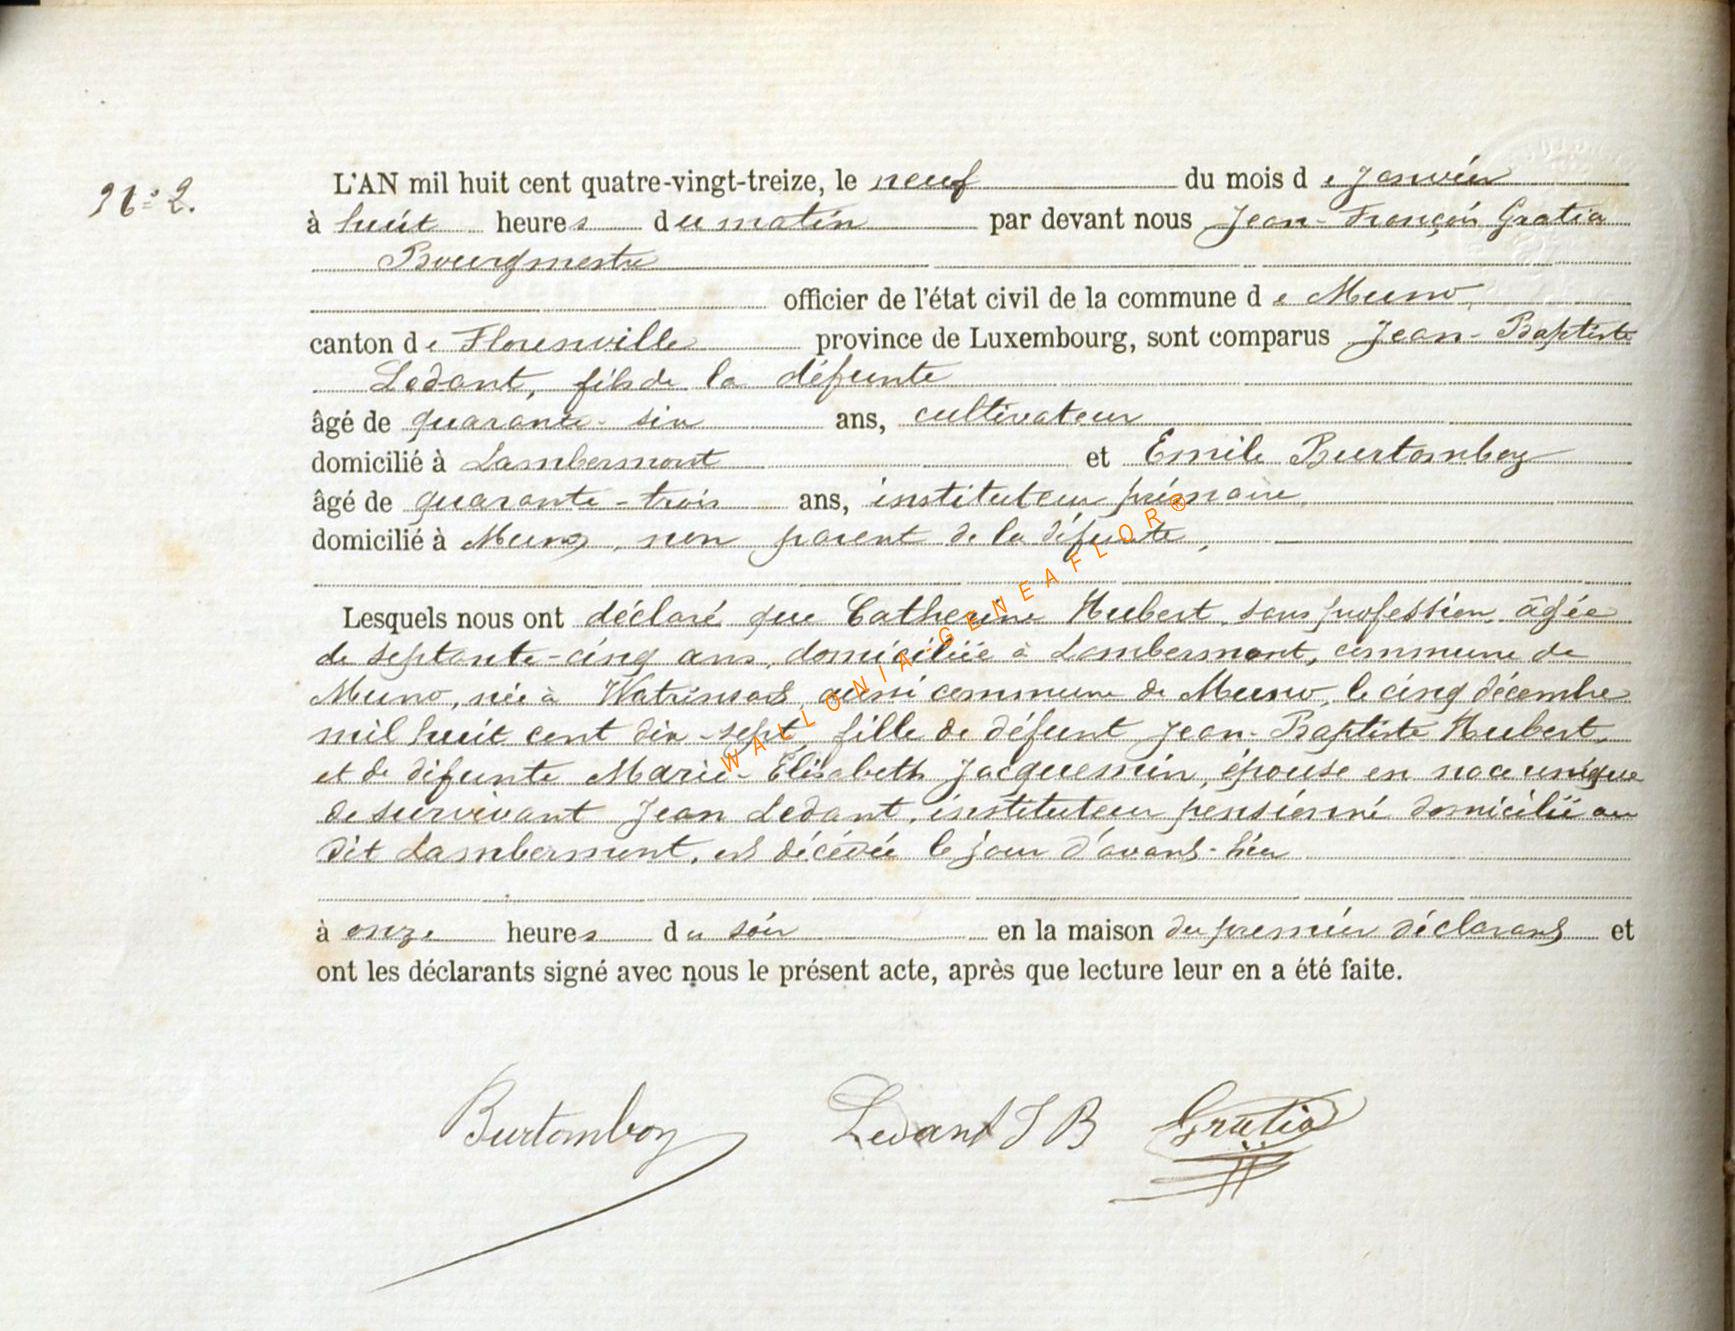 N° 2.
L'AN mil huit cent quatre-vingt-treize, le neuf du mois de Janvier
à huit heures du matin par devant nous Jean-François Gratia
Bourgmestre
officier de l'état civil de la commune de Muno,
canton de Florenville province de Luxembourg, sont comparus Jean-Baptiste
Ledant, fils de la défunte
âgé de quarante-six ans, cultivateur
domicilié à Lambermont et Emile Burtomboy
âgé de quarante-trois ans, instituteur primaire,
domicilié à Muno, non parent de la défunte,
Lesquels nous ont déclaré que Catherine Hubert, sans profession, âgée
de septante-cinq ans, domiciliée à Lambermont, commune de
Muno, née à Watrinsart, aussi commune de Muno, le cinq décembre
mil huit cent dix-sept, fille de défunt Jean-Baptiste Hubert,
et de défunte Marie-Elisabeth Jacquemin, épouse en noce unique
de survivant Jean Ledant, instituteur pensionné domicilié au
dit Lambermont, est décédée le jour d'avant-hier
à onze heures du soir en la maison du premier déclarant et
ont les déclarants signé avec nous le présent acte, après que lecture leur en a été faite.
Burtomboy Ledant J B Gratia
WALLONIA-GENEAFLOR®